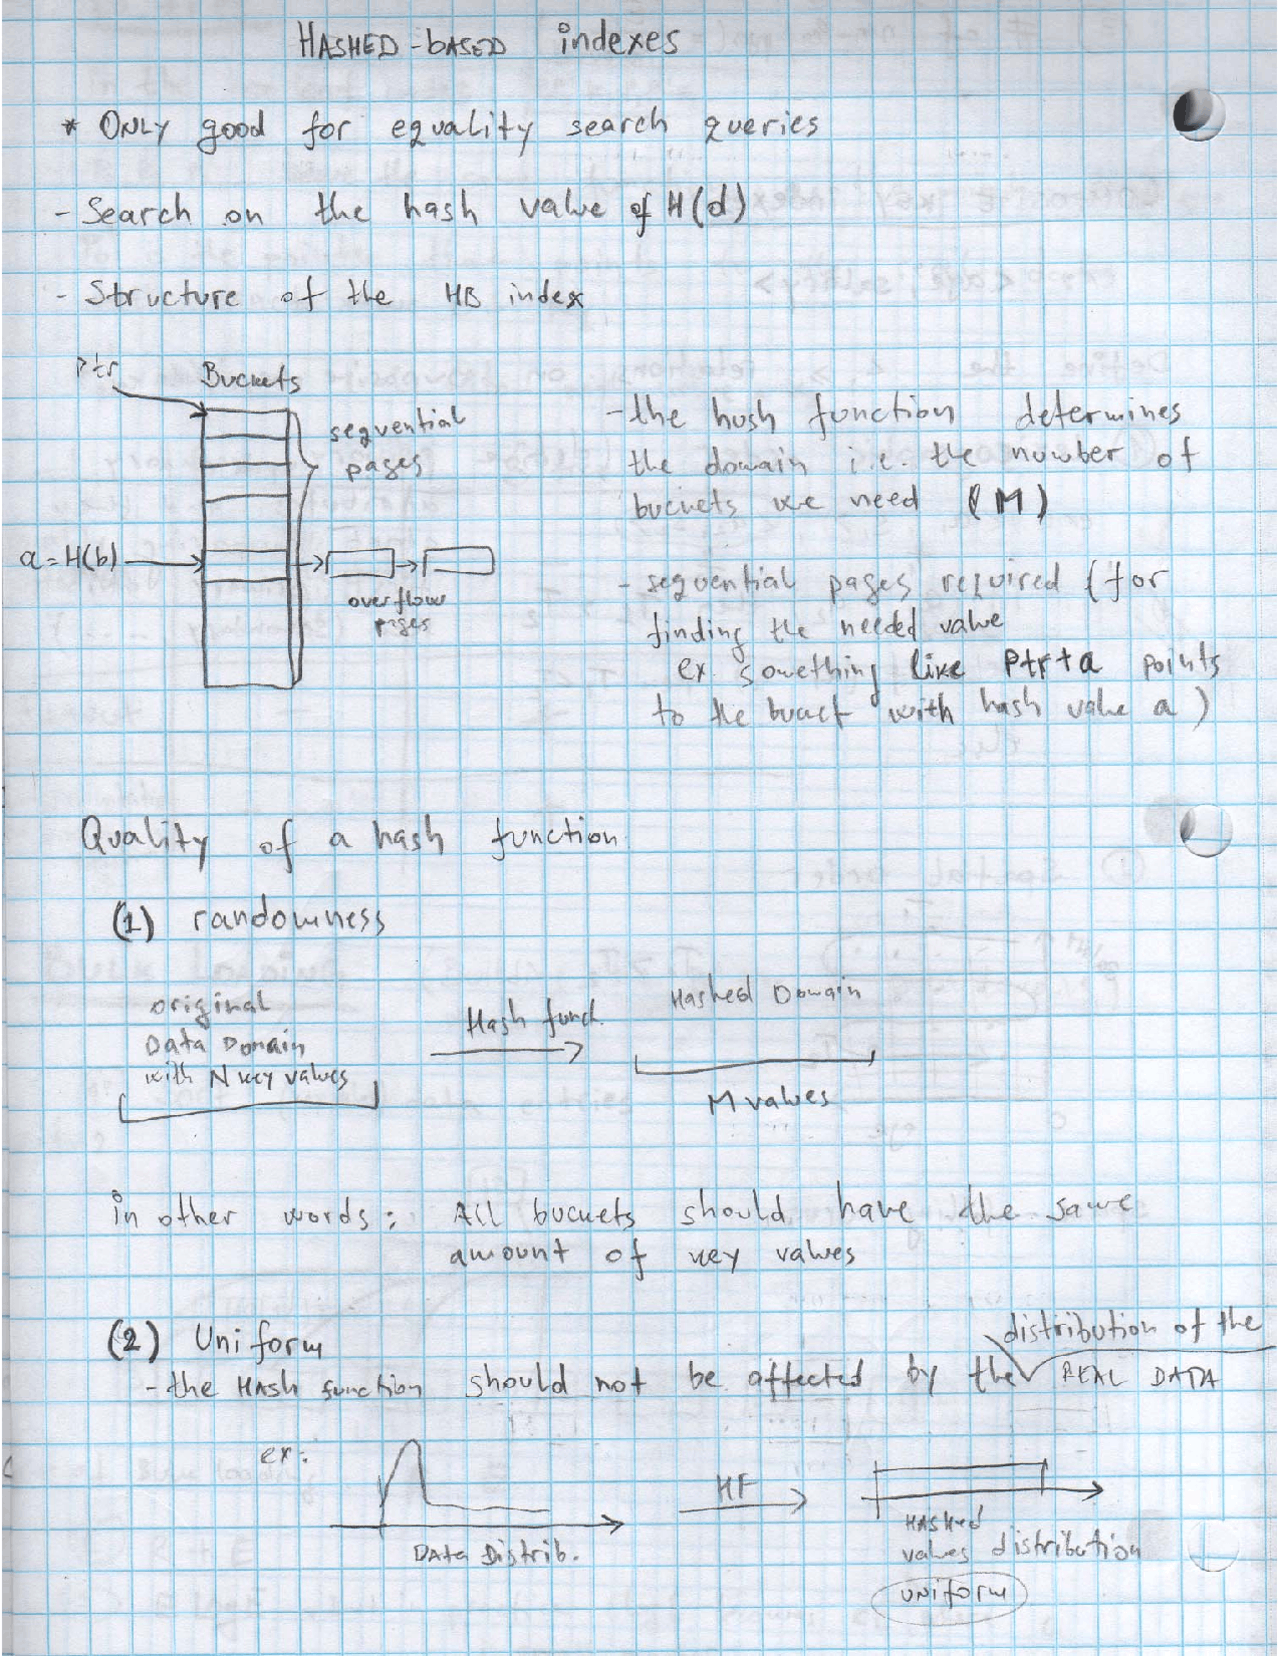 HASHED-BASED indexes
* ONLY good for equality search queries
- Search on the hash value of H(d)
- Structure of the HB index
Ptr
Buckets
sequential
pages
a = H(b)
overflow
pages
- the hash function determines
the domain i.e. the number of
buckets we need (M)
- sequential pages required (for
finding the needed value
ex. something like Ptr+a points
to the bucket with hash value a)
Quality of a hash function
(1) randomness
original
Data Domain
with N key values
Hash funct.
Hashed Domain
M values
in other words: All buckets should have the same
amount of key values
(2) Uniform
distribution of the
- the HASH function should not be affected by the REAL DATA
ex:
DATA Distrib.
HF
HASHed
values distribution
UNiform